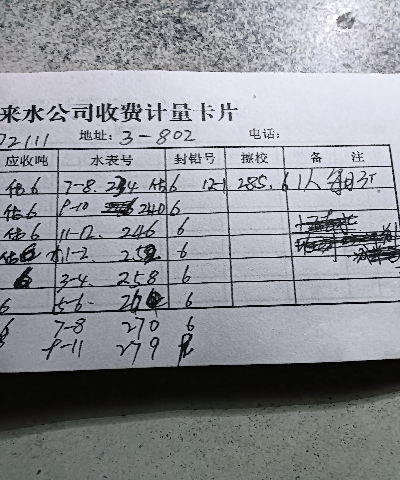 来水公司收费计量卡片
72111 地址: 3-802 电话:
应收吨 水表号 封铅号 擦校 备 注
估6 7-8. 234 估6 12-1 285. 6 1人每月3T
估6 9-10 240 6
估6 11-12. 246 6
估6 1-2. 252 6
6 3-4. 258 6
6 5-6. 264 6
6 7-8 270 6
9-11 279